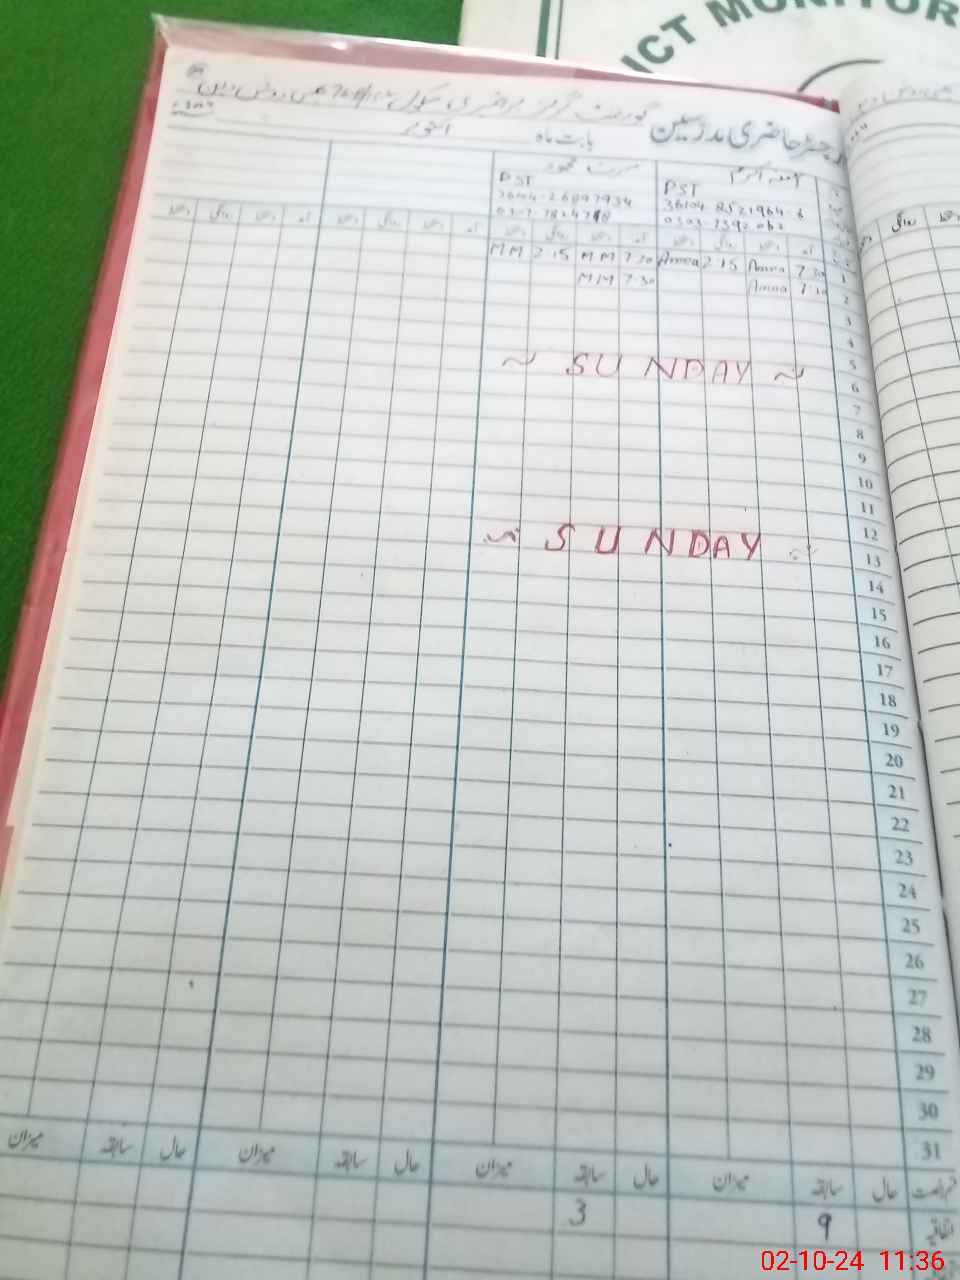 ICT MONITOR
گورنمنٹ گرلز پرائمری سکول
رجسٹر حاضری مدرسین بابت ماہ اکتوبر
PST PST
0303-7392062
آمد دستخط روانگی دستخط آمد دستخط روانگی دستخط آمد روانگی آمد روانگی
1 7.30 Amna 2.15 Amna 7.30 MM 2.15 MM
2 Amna 7.30 MM
3
4
5
6 ~ SUNDAY ~
7
8
9
10
11
12
13 ~ SUNDAY ~
14
15
16
17
18
19
20
21
22
23
24
25
26
27
28
29
30
31
رخصت حال سابقہ میزان حال سابقہ میزان حال سابقہ میزان حال سابقہ میزان
اتفاقیہ 9 3
02-10-24 11:36